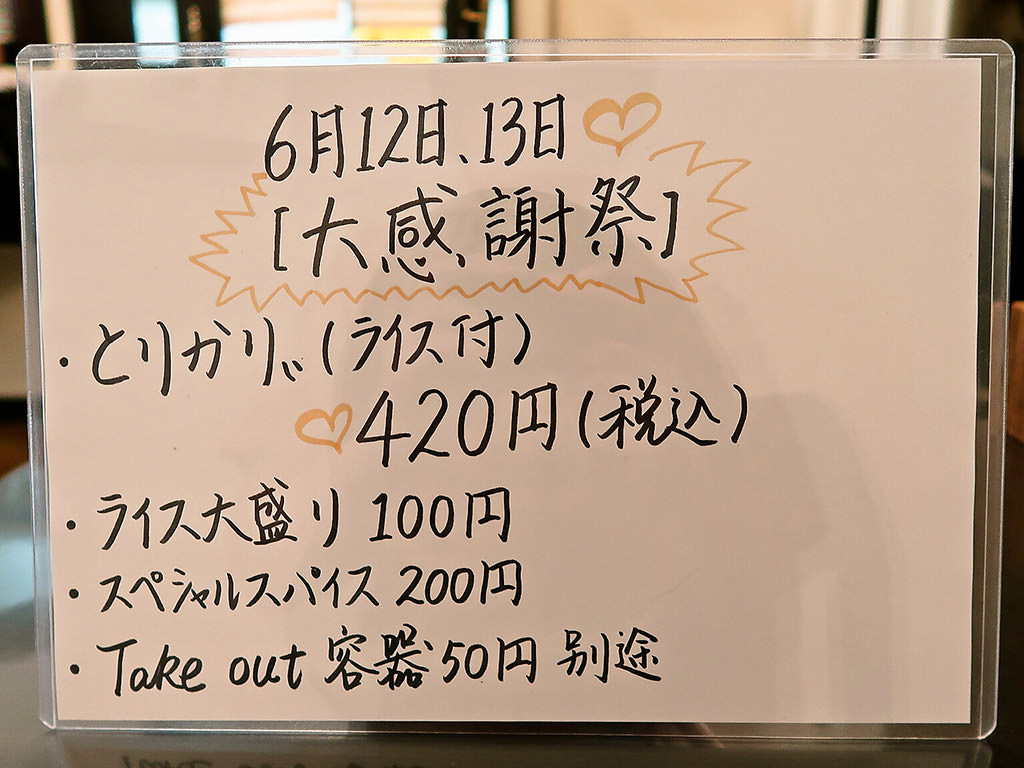 6月12日、13日
[大感謝祭]
・とりかりぃ(ライス付)
420円(税込)
・ライス大盛り 100円
・スペシャルスパイス 200円
・Take out 容器 50円 別途